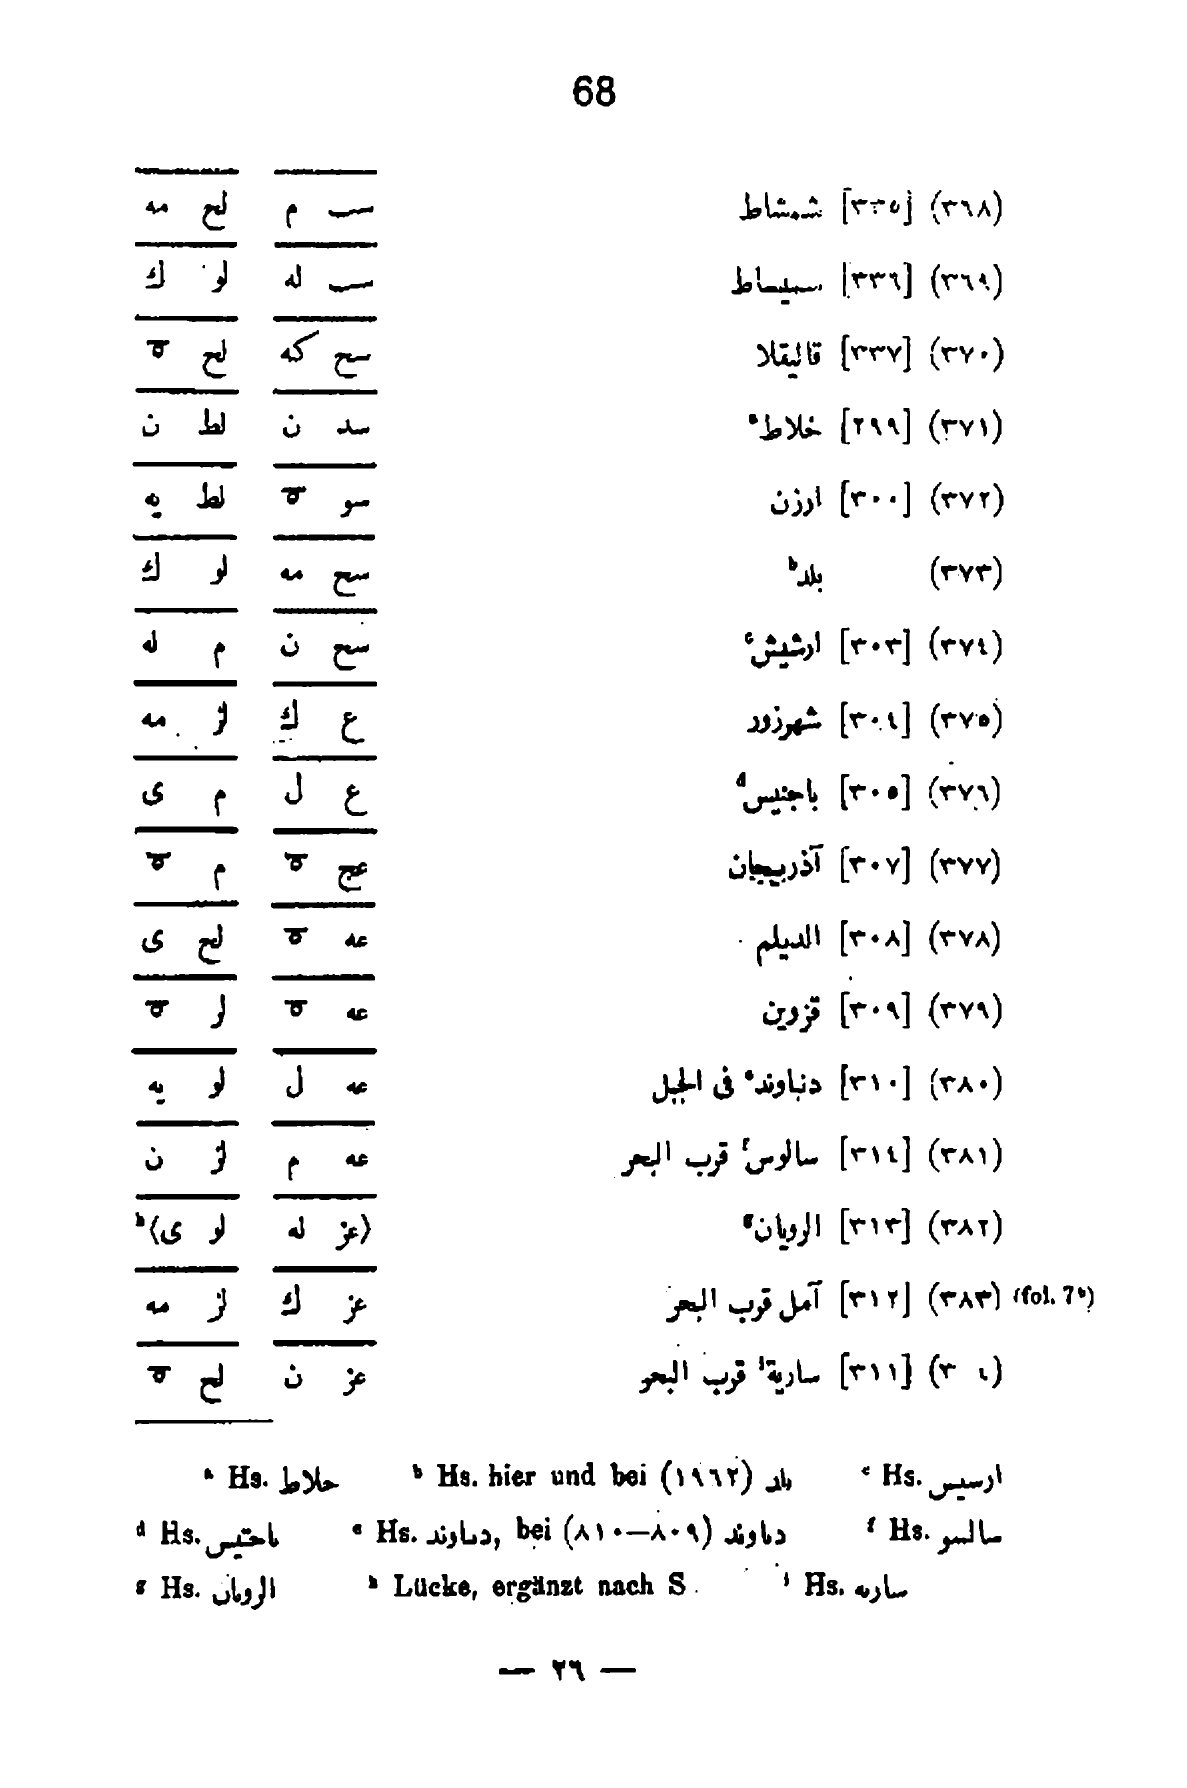 68
(٣٦٨) [٣٣٥] شمشاط سب م لح مه
(٣٦٩) [٣٣٦] سميساط سب له لو ك
(٣٧٠) [٣٣٧] قاليقلا سح كه لح ه
(٣٧١) [٢٩٩] خلاط a سد ن لط ن
(٣٧٢) [٣٠٠] ارزن سو ه لط يه
(٣٧٣) بلد b سح مه لو ك
(٣٧٤) [٣٠٣] ارشيش c سح ن م له
(٣٧٥) [٣٠٤] شهرزور ع ك لز مه
(٣٧٦) [٣٠٥] باجنيس d ع ل م ى
(٣٧٧) [٣٠٧] آذربيجان عج ه م ه
(٣٧٨) [٣٠٨] الديلم عه ه لح ى
(٣٧٩) [٣٠٩] قزوين عه ه لو ه
(٣٨٠) [٣١٠] دنباوند e فى الجبل عه ل لو يه
(٣٨١) [٣١٤] سالوس f قرب البحر عه م لز ن
(٣٨٢) [٣١٣] الرويان g ⟨عز له لو ى⟩ h
(fol. 7b) (٣٨٣) [٣١٢] آمل قرب البحر عز ك لز مه
(٣ ٤) [٣١١] سارية i قرب البحر عز ن لح ه
a Hs. حلاط b Hs. hier und bei (١٩٦٢) بلد c Hs. ارسيس
d Hs. باحتيس e Hs. دىىاوىد, bei (٨٠٩—٨١٠) دباوند f Hs. سالسو
g Hs. الروىان h Lücke, ergänzt nach S i Hs. ساربه
— ٢٦ —